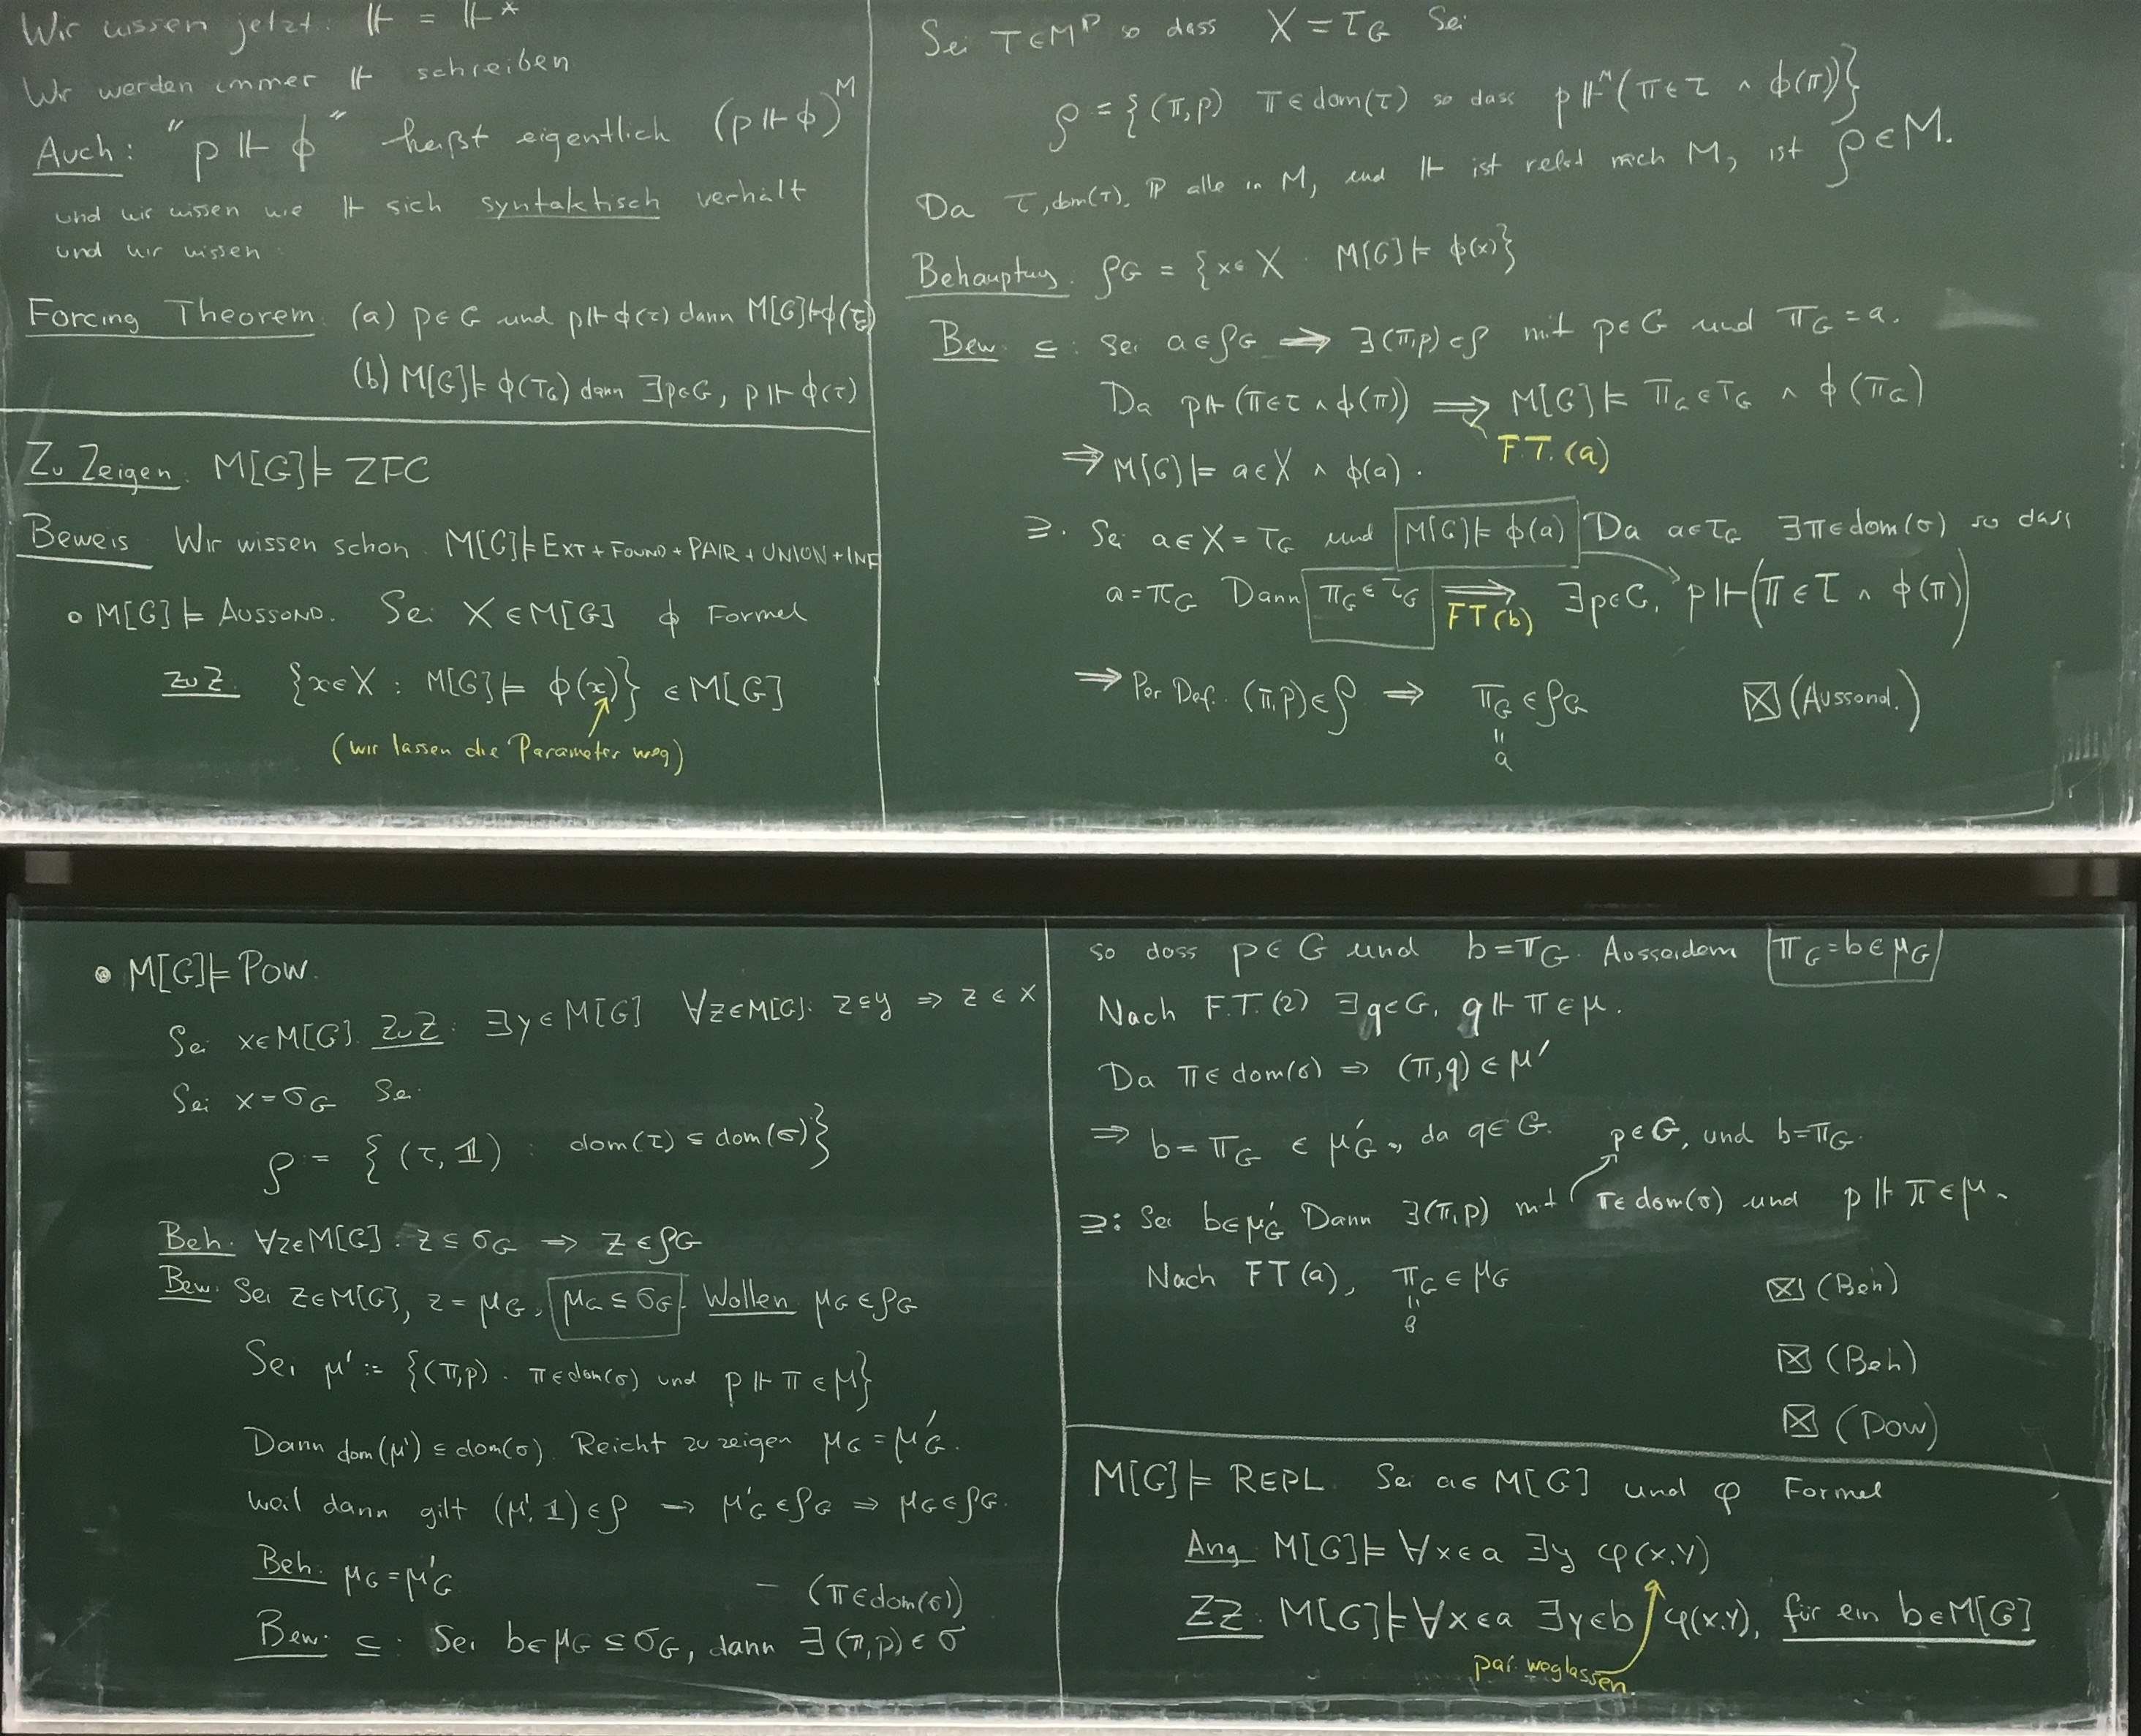 Wir wissen jetzt: ⊩ = ⊩*
Wir werden immer ⊩ schreiben
Auch: "p ⊩ ϕ" heißt eigentlich (p ⊩ ϕ)^M
und wir wissen wie ⊩ sich syntaktisch verhält
und wir wissen:
Forcing Theorem: (a) p∈G und p⊩ϕ(τ) dann M[G]⊨ϕ(τ_G)
(b) M[G]⊨ϕ(τ_G) dann ∃p∈G, p⊩ϕ(τ)
Zu Zeigen: M[G]⊨ZFC
Beweis Wir wissen schon: M[G]⊨EXT+FOUND+PAIR+UNION+INF
• M[G]⊨AUSSOND. Sei X∈M[G] ϕ Formel
zu Z. {x∈X : M[G]⊨ϕ(x)} ∈M[G]
(wir lassen die Parameter weg)
Sei τ∈M^ℙ so dass X=τ_G Sei
ρ = {(π,p) π∈dom(τ) so dass p⊩^M(π∈τ ∧ ϕ(π))}
Da τ, dom(τ), ℙ alle in M, und ⊩ ist relat nach M, ist ρ∈M.
Behauptung. ρ_G = {x∈X : M[G]⊨ϕ(x)}
Bew ⊆: Sei a∈ρ_G ⟹ ∃(π,p)∈ρ mit p∈G und π_G=a.
Da p⊩(π∈τ∧ϕ(π)) ⟹ M[G]⊨π_G∈τ_G ∧ ϕ(π_G)
F.T.(a)
⇒ M[G]⊨a∈X ∧ ϕ(a).
⊇. Sei a∈X=τ_G und M[G]⊨ϕ(a) Da a∈τ_G ∃π∈dom(σ) so dass
a=π_G Dann π_G∈τ_G ⟹ ∃p∈G, p⊩(π∈τ ∧ ϕ(π))
FT(b)
⟹ Per Def. (π,p)∈ρ ⟹ π_G∈ρ_G ☒(Aussond.)
=
a
• M[G]⊨Pow.
Sei x∈M[G]. ZuZ: ∃y∈M[G] ∀z∈M[G]: z⊆y ⇒ z∈x
Sei x=σ_G Sei
ρ := {(τ,𝟙) : dom(τ)⊆dom(σ)}
Beh. ∀z∈M[G]. z⊆σ_G ⇒ z∈ρ_G
Bew. Sei z∈M[G], z=μ_G, μ_G⊆σ_G. Wollen μ_G∈ρ_G
Sei μ' := {(π,p) . π∈dom(σ) und p⊩π∈μ}
Dann dom(μ')⊆dom(σ). Reicht zu zeigen μ_G=μ'_G.
weil dann gilt (μ',𝟙)∈ρ → μ'_G∈ρ_G ⇒ μ_G∈ρ_G.
Beh: μ_G=μ'_G
– (π∈dom(σ))
Bew: ⊆: Sei b∈μ_G⊆σ_G, dann ∃(π,p)∈σ
so dass p∈G und b=π_G. Ausserdem π_G=b∈μ_G
Nach F.T.(2) ∃q∈G, q⊩π∈μ.
Da π∈dom(σ) ⇒ (π,q)∈μ'
⇒ b=π_G ∈ μ'_G, da q∈G. p∈G, und b=π_G.
⊇: Sei b∈μ'_G Dann ∃(π,p) mit π∈dom(σ) und p⊩π∈μ.
Nach FT(a), π_G∈μ_G ☒(Beh)
=
b
☒(Beh)
☒(Pow)
M[G]⊨REPL. Sei a∈M[G] und φ Formel
Ang M[G]⊨∀x∈a ∃y φ(x,y)
ZZ: M[G]⊨∀x∈a ∃y∈b φ(x,y), für ein b∈M[G]
par weglassen.